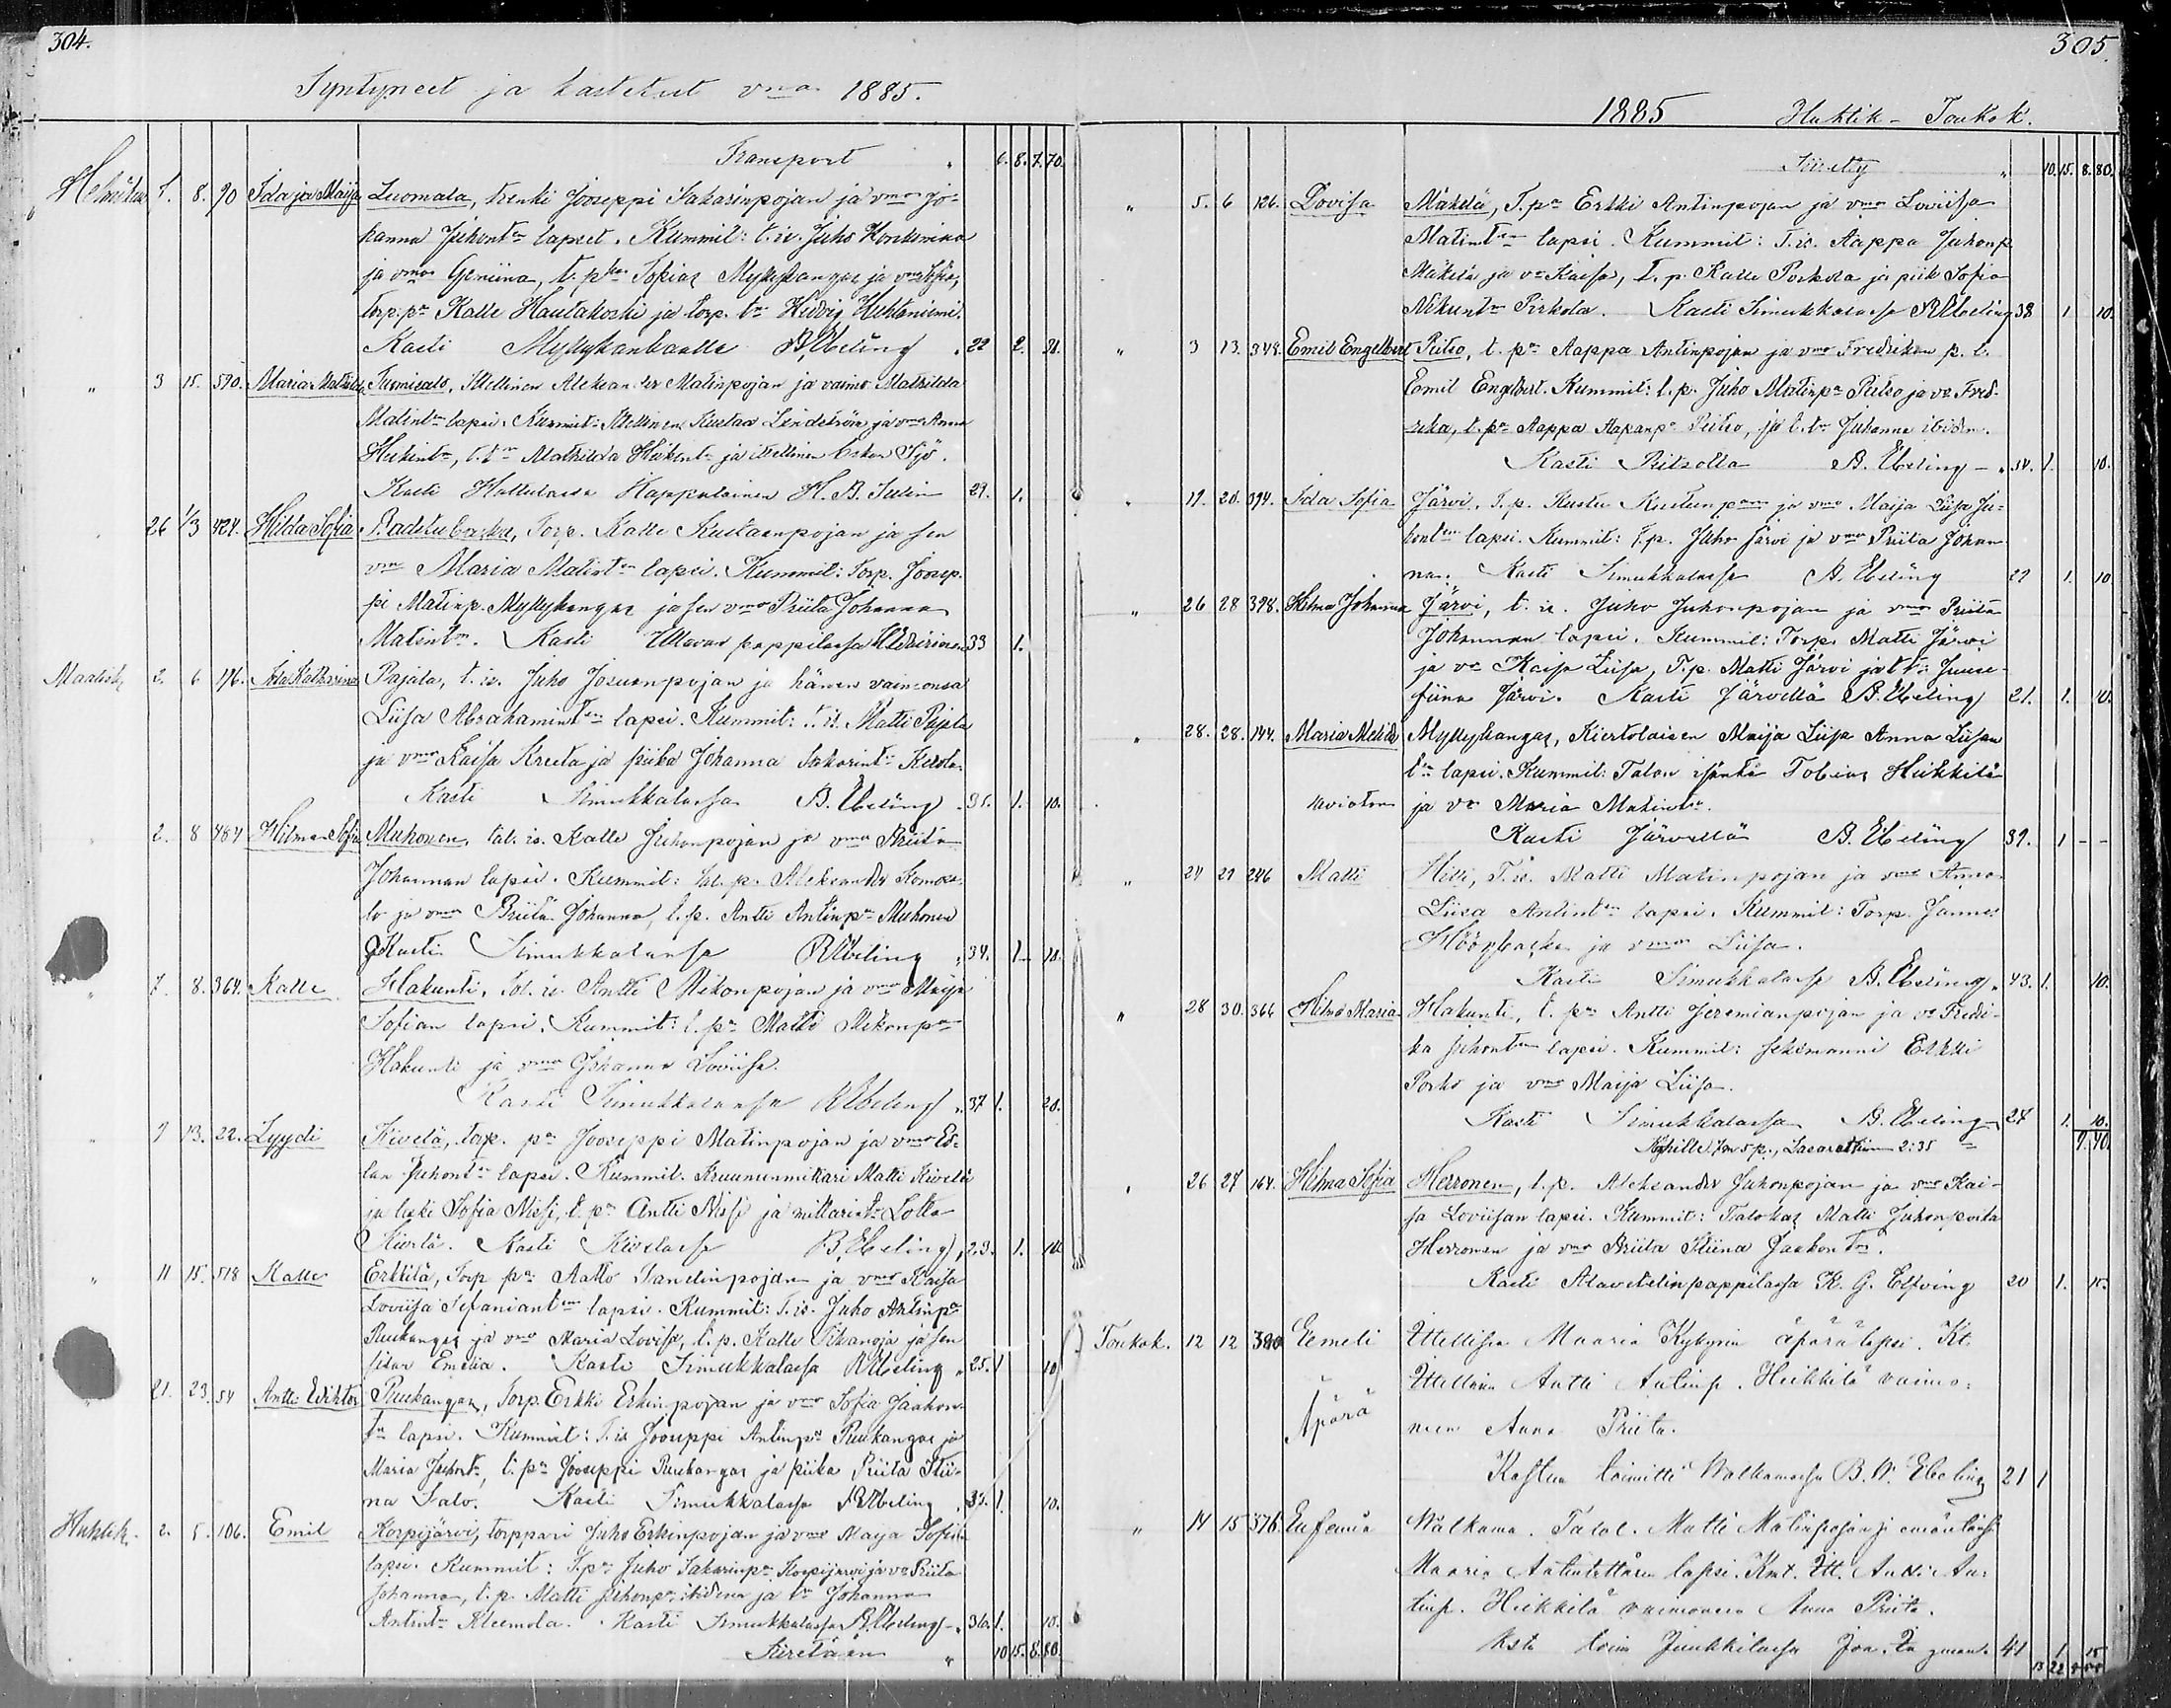 304.
Syntyneet ja kastetut vna 1885.
Transport 6. 8. 7. 70.
1. 8. 90 Ida ja Maija Luomala, trenki Jooseppi Sakarinpojan ja vmon Jo-
hanna Juhontn lapset. Kummit: t. is. Juho
ja vmo t. p. Topias Myllykangas ja vmo Sofia,
torp. pa Kalle Hautakoski ja torp. tr Hedvig Huhtaniemi.
Kasti Myllykankaalla B. Ebeling 22 2. 20.
" 3 15. 590. Maria Matilda Tuomisalo, Itellinen Aleksander Matinpojan ja vaimo Mathilda
Matintn lapsi. Kummit: Itellinen Kustaa Lindström ja vmo Anna
Heikintr, t. tr Mathilda Heikintr ja itellinen Oskar Sjö.
Kasti Happalainen H. B. 29. 1.
26 1/3 424. Hilda Sofia Torp. Kalle Kustaanpojan ja sen
vmon Maria Matintn lapsi. Kummit: Torp. Joosep-
pi Matinp. Myllykangas ja sen vmo Priita Johanna
Matintr. Kasti pappilassa 33 1.
Maalisk. 2. 6 176. Ida Katharina Pajala, t. is. Juho Josuanpojan ja hänen vaimonsa
Liisa Abrahamintn lapsi. Kummit: t. is. Matti Pajala
ja vmo Kaisa Kreeta ja piika Johanna Sakarintr
Kasti Simukkalassa B. Ebeling 35. 1. 10.
2. 8 484 Hilma Sofia Muhonen, tal. is. Kalle Juhonpojan ja vmon Priita
Johannan lapsi. Kummit: tal. p. Aleksander
lo ja vmo Briita Johanna, t. p. Antti Antinpa Muhonen
Kasti Simukkalassa B Ebeling 34. 1. 10.
" 7. 8. 364. Kalle Hakunti, Tal. is. Antti Mikonpojan ja vmon Maija
Sofian lapsi. Kummit: t. pa Matti Mikonpa
Hakunti ja vmo Johanna Loviisa.
Kasti Simukkalassa B Ebeling 37 1. 20.
" 9 13. 22. Lyydi Kivelä, torp. pa Jooseppi Matinpojan ja vmo
Juhontn lapsi. Kummit: Kruununmittari Matti Kivelä
ja leski Sofia Nissi, t. pa Antti Nissi ja mittarintr Lotta
Kivelä. Kasti Kivelässä B Ebeling 23. 1. 10
" 11 15. 518 Kalle Erkkilä, Torp pa: Aatto Taneli npojan ja vmo Kaisa
Loviisa Stefaniantn lapsi. Kummit: T. is. Juho Antinpa
Ruukangas ja vmo Maria Lovisa, t. p. Kalle Pihanoja ja sen
sisar Emelia. Kasti Simukkalassa B Ebeling 25. 1 10
21. 23. 54 Antti Wiktor Ruukangas, Torp. Erkki Erkinpojan ja vmo Sofia Jaakon-
tn lapsi. Kummit: T. is Jooseppi Antinpa Ruukangas ja
Maria Juhontr, t. pa Jooseppi Ruukangas ja piika Priita Stii-
na Salo. Kasti Simukkalassa B Ebeling 37. 1. 10.
Huhtik. 2. 5. 106. Emil Korpijärvi, torppari Juho Erkinpojan ja vmo Maija Sofian
lapsi. Kummit: T. pa: Juho Sakarinpa Korpijärvi ja vo Priita
Johanna, t. p. Matti Juhonpa ibidem ja tr Johanna
Antintr Kleemola. Kasti Simukkalassa B. Ebeling 36. 1. 10.
Siiretään " 10 15. 8. 80.
305.
1885 Huhtik - Toukok.
Siirretty " 10. 15. 8. 80.
" 5. 6 126. Lovisa Mäkelä, T. pa Erkki Antinpojan ja vmo Loviisa
Matintn lapsi. Kummit: T. is. Aappa Juhonp.
Mäkelä ja vo Kaisa, t. p. Kalle Porkola ja piik Sofia
Pirkola. Kasti Simukkalassa B Ebeling 38 1 10.
" 3 13. 348. Emil Engelbert Piitso, t. pa Aappa Antinpojan ja vmo Fredrikan p. l.
Emil Engelbert. Kummit: t. p. Juho Matinpa Piitso ja vo Fred-
rika, t. pa Aappa Aapanpa Piitso, ja t. tr Juhanna ibidm.
Kasti Piitsolla B. Ebeling - 34. 1. 10.
" 19. 20. 394. Ida Sofia Järvi, T. p. Kustu Kustunpojan ja vmo Maija Liisa Ju-
hontn lapsi. Kummit: T. p. Juho Järvi ja vmo Priita Johan-
na. Kasti Simukkalassa B. Ebeling 29 1. 10
" 26 28 398. Hilma Johanna Järvi, t. is. Juho Juhonpojan ja vmo Priita
Johannan lapsi. Kummit: Torp. Matti Järvi
ja vo Kaisa Liisa, T. p. Matti Järvi ja t t: Juuse-
fiina Järvi. Kasti Järvellä B. Ebeling 21. 1. 10.
" 28. 28. 144. Maria Melida Myllykangas, Kiertolaisen Maija Liisa Anna Liisan
tn lapsi. Kummit: Talon isäntä Tobias Heikkilä
avioton ja vo Maria Matintr.
Kasti Järvellä B. Ebeling 39. 1 - -
" 24 29 246 Matti Hilli, T. is. Matti Matinpojan ja vmo Anna
Liisa Antintn lapsi. Kummit: Torp. Jannes
Höönbacka ja vmo Liisa.
Kasti Simukkalassa B. Ebeling. 43. 1. 10.
" 28 30. 366 Hilma Maria Hakunti, t. pa Antti Jeremianpojan ja vo Fredri-
ka Juhontn lapsi. Kummit: seksmanni Erkki
Porko ja vmo Maija Liisa.
Kasti Simukkalassa B. Ebeling 24 1. 10.
7 m 5 p., Lasarettiin 2:35 9. 40.
" 26 27 164. Hilma Sofia Herronen, t. p. Aleksander Juhonpojan ja vmo Kai-
sa Loviisan lapsi. Kummit: Talokas Matti Juhonpoika
Herronen ja vmo Briita Stiina Jaakontr.
Kasti Alavetelinpappilassa K. G. Elfving 20 1. 10.
Toukok. 12 12 390 Eemeli Itellisen Maaria Kykyrin äpärä lapsi. Kt.
Itellinen Antti Antinp. Heikkilä vaimo-
Äpärä neen Anna Priita.
Kasteen toimitti Walkamassa B. W. Ebeling 21 1
" 14 15 376. Eufemia Walkama. Talol. Matti Matinpojan ja emäntänsä
Maaria Antintyttären lapsi. Kmt. Itt. Antti An-
tinp. Heikkilä vaimoneen Anna Priita.
Kste toim Junkkilassa 41 1 15
13 22